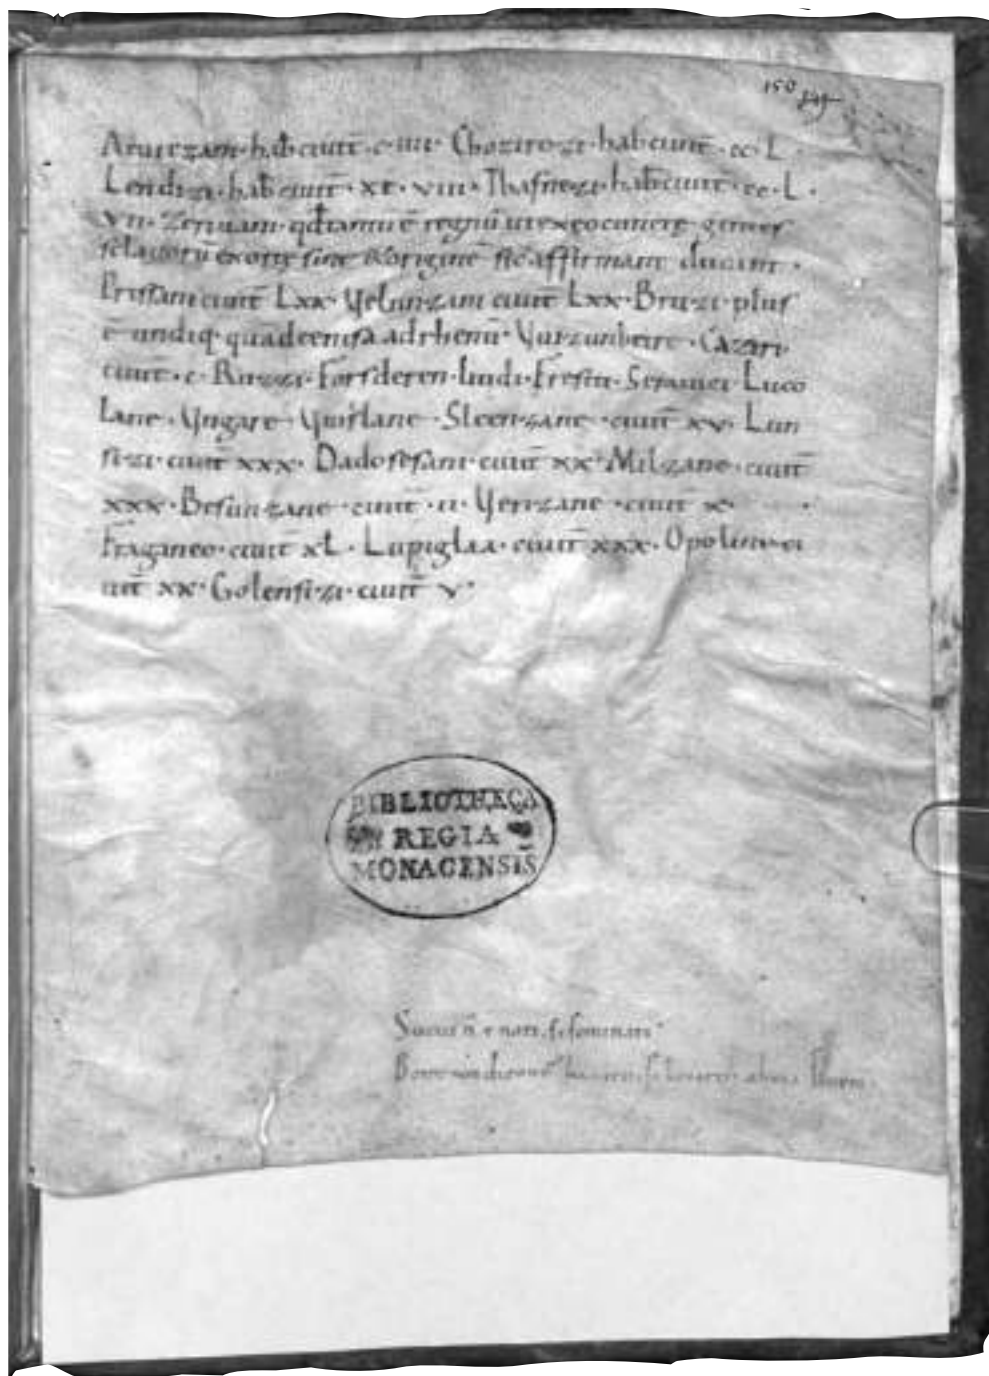 150
Atturezani · habent ciuit̄ · c · iiii · Chozirozi · hab ciuit̄ · cc · L ·
Lendizi · hab ciuit̄ · xc · viii · Thafnezi · hab ciuit̄ · cc · L ·
vii · Zeriuani · qd̄ tantū ē regnū ut ex eo cuncte gentes
sclauorū exorte sint & origine sic affirmant ducant ·
Prissani ciuit̄ Lxx · Velunzani ciuit̄ Lxx · Bruzi · plus
ē undiq · quā de enisa ad rhenū · Vuizunbeire · Caziri
ciuit̄ · c · Ruzzi · Forsderen · liudi · Fresiti · Serauici · Luco
lane · Vngare · Vuislane · Sleenzane · ciuit̄ xv · Lun
sizi · ciuit̄ xxx · Dadosesani · ciuit̄ xx · Milzane · ciuit̄
xxx · Besunzane · ciuit̄ · ii · Verizane · ciuit̄ x ·
Fraganeo · ciuit̄ xL · Lupiglaa · ciuit̄ xxx · Opolini · ci
uit̄ xx · Golensizi · ciuit̄ v ·
BIBLIOTHECA
REGIA
MONACENSIS